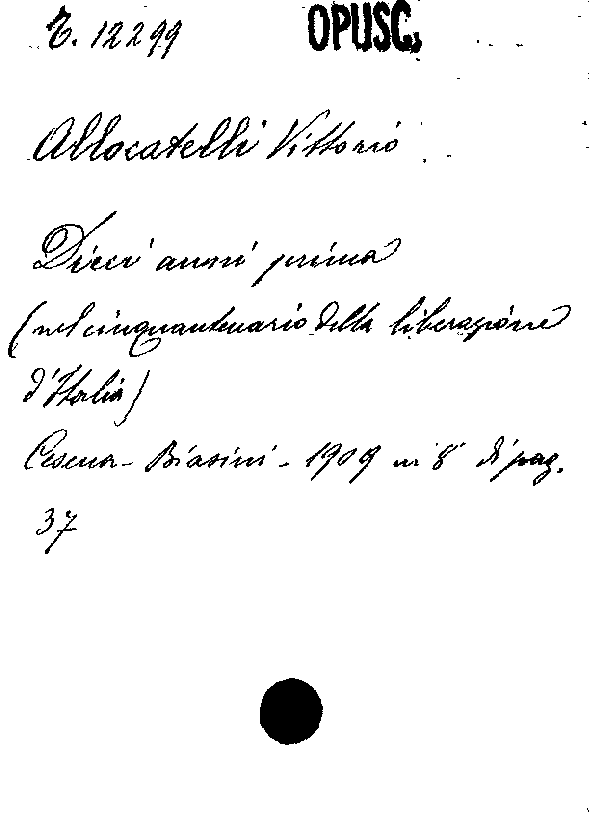 T. 12299 OPUSC.
Allocatelli Vittorio
Dieci anni prima
(nel cinquantenario della liberazione
d'Italia)
Cesena - Biasini - 1909 in 8° di pag.
37